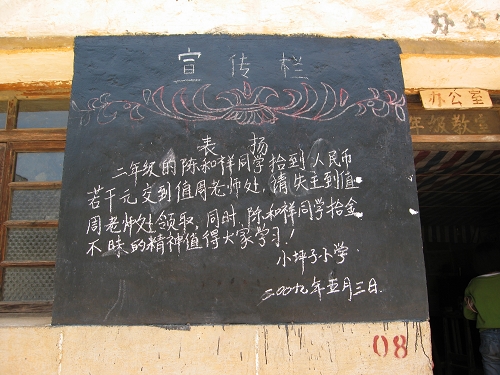 办公
宣传栏
办公室
年级教室
表扬
二年级的陈和祥同学拾到人民币
若干元交到值周老师处,请失主到值
周老师处领取,同时,陈和祥同学拾金
不昧的精神值得大家学习!
小坪子小学
二〇〇九年五月三日.
08